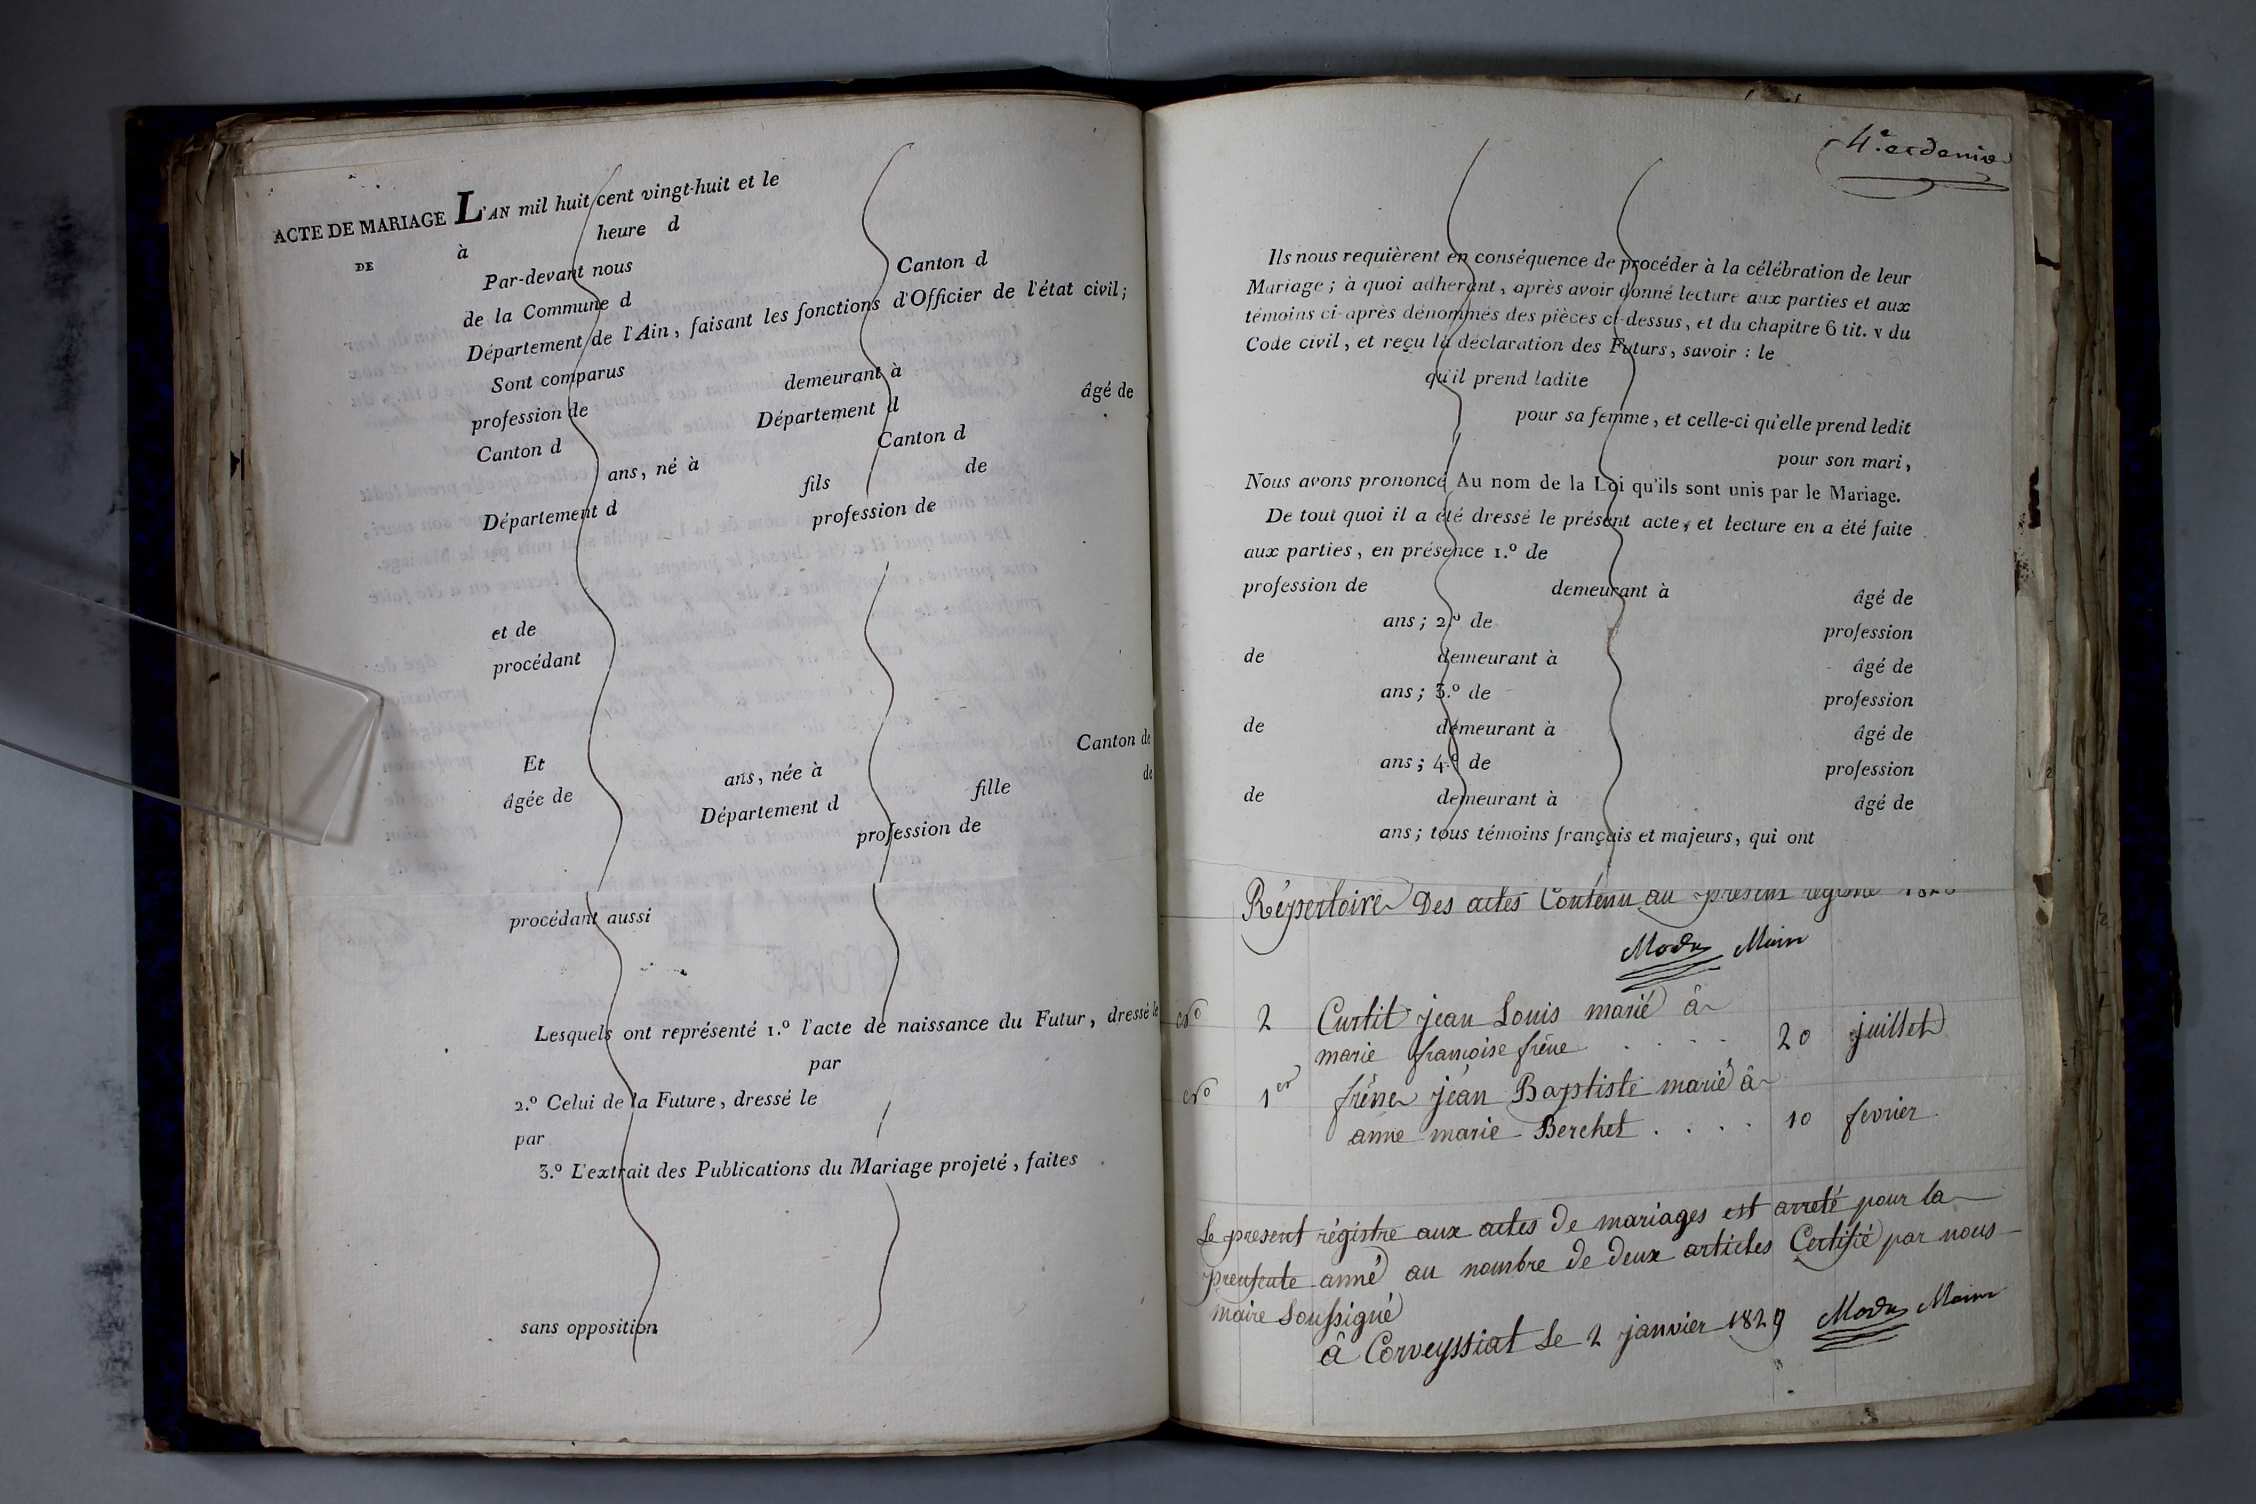 ACTE DE MARIAGE L'AN mil huit cent vingt-huit et le
DE à heure d
Par-devant nous
de la Commune d Canton d
Département de l'Ain, faisant les fonctions d'Officier de l'état civil;
Sont comparus
profession de demeurant à
Canton d Département d âgé de
ans, né à Canton d
Département d fils de
profession de
et de
procédant
Et
âgée de ans, née à Canton de
Département d fille de
profession de
procédant aussi
Lesquels ont représenté 1.º l'acte de naissance du Futur, dressé le
par
2.º Celui de la Future, dressé le
par
3.º L'extrait des Publications du Mariage projeté, faites
sans opposition
4.e et
Ils nous requièrent en conséquence de procéder à la célébration de leur
Mariage; à quoi adhérant, après avoir donné lecture aux parties et aux
témoins ci-après dénommés des pièces ci-dessus, et du chapitre 6 tit. v du
Code civil, et reçu la déclaration des Futurs, savoir : le
qu'il prend ladite
pour sa femme, et celle-ci qu'elle prend ledit
pour son mari,
Nous avons prononcé Au nom de la Loi qu'ils sont unis par le Mariage.
De tout quoi il a été dressé le présent acte, et lecture en a été faite
aux parties, en présence 1.º de
profession de demeurant à âgé de
ans; 2.º de profession
de demeurant à âgé de
ans; 3.º de profession
de demeurant à âgé de
ans; 4.º de profession
de demeurant à âgé de
ans; tous témoins français et majeurs, qui ont
Répertoire Des actes Contenu au present registre 1828
Maire
nº 2 Curtit jean Louis marié â
marie françoise frêne . . . . 20 juillet
nº 1er frêne jean Baptiste marié â
anne marie Berchet . . . . 10 fevrier
Le present régistre aux actes De mariages est arreté pour la
anné au nombre De Deux articles Certifié par nous
maire Soussigné
â Corveyssiat Le 2 janvier 1829 Maire